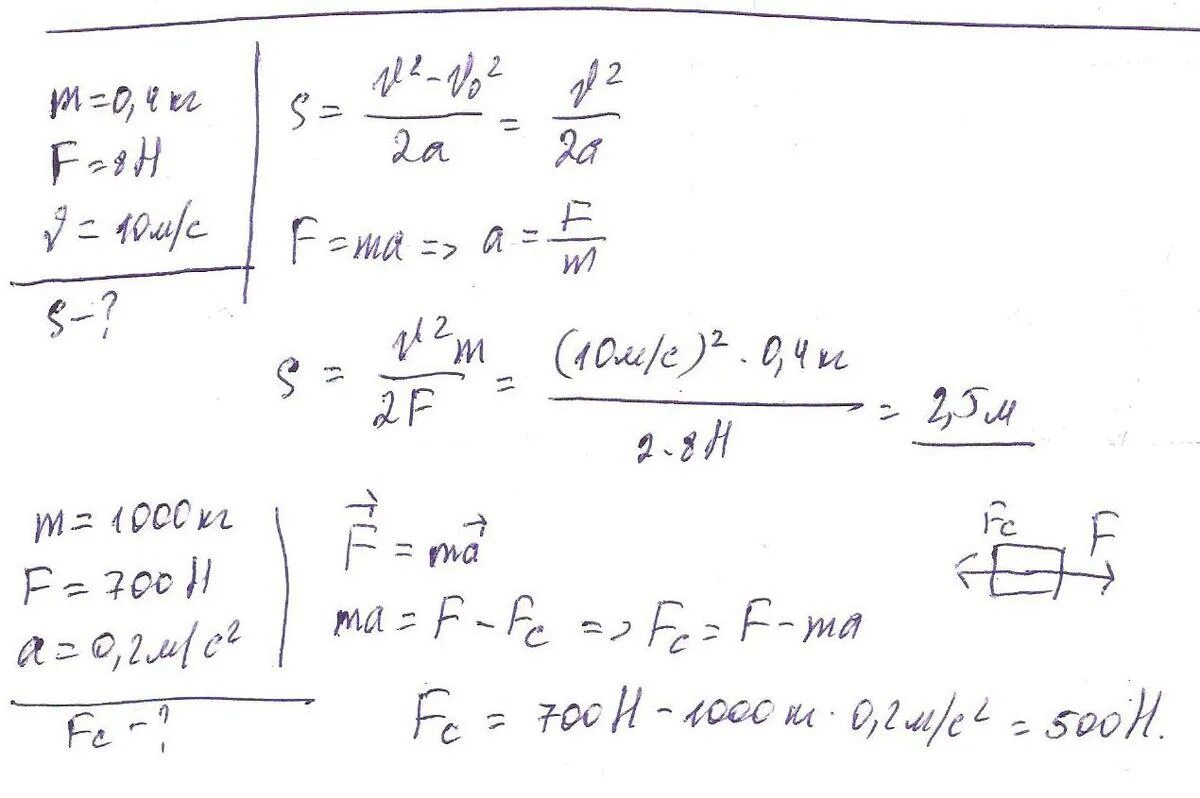 m = 0,4 кг
F = 8 Н
υ = 10 м/с
S - ?
S = (υ² - υ₀²)/(2a) = υ²/(2a)
F = ma => a = F/m
S = (υ²m)/(2F) = ((10 м/с)² · 0,4 кг)/(2 · 8Н) = 2,5 м
m = 1000 кг
F = 700 Н
a = 0,2 м/с²
Fc - ?
F⃗ = ma⃗
ma = F - Fc => Fc = F - ma
Fc F
Fc = 700 Н - 1000 кг · 0,2 м/с² = 500 Н.